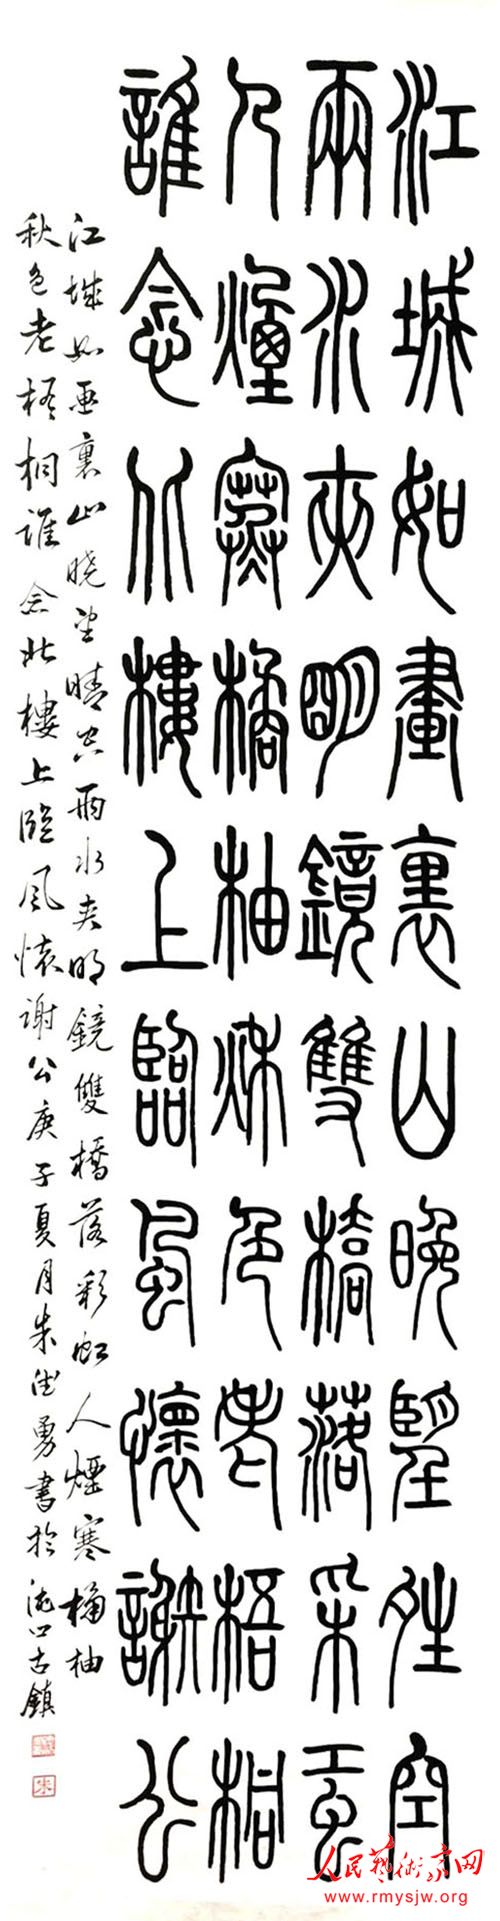 江城如畫裏山晚望晴空
兩水夾明鏡雙橋落采虹
人煙寒橘柚秋色老梧桐
誰念北樓上臨風懷謝公
江城如畫裏山曉望晴空兩水夾明鏡雙橋落彩虹人煙寒橘柚
秋色老梧桐誰念北樓上臨風懷謝公庚子夏月朱德勇書於口古鎮
朱
人民藝術家网
www.rmysjw.org